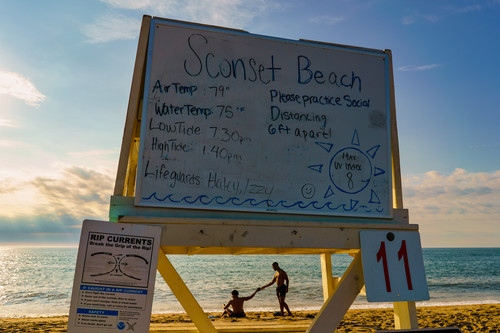 Sconset Beach
Air Temp : 79°
Water Temp 75°F
Low Tide 7:30pm
High Tide 1:40pm
Lifeguards Haley, Izzy
Please practice Social
Distancing
6ft apart!
Max
UV Index
8
RIP CURRENTS
Break the Grip of the Rip!
SAFETY
11